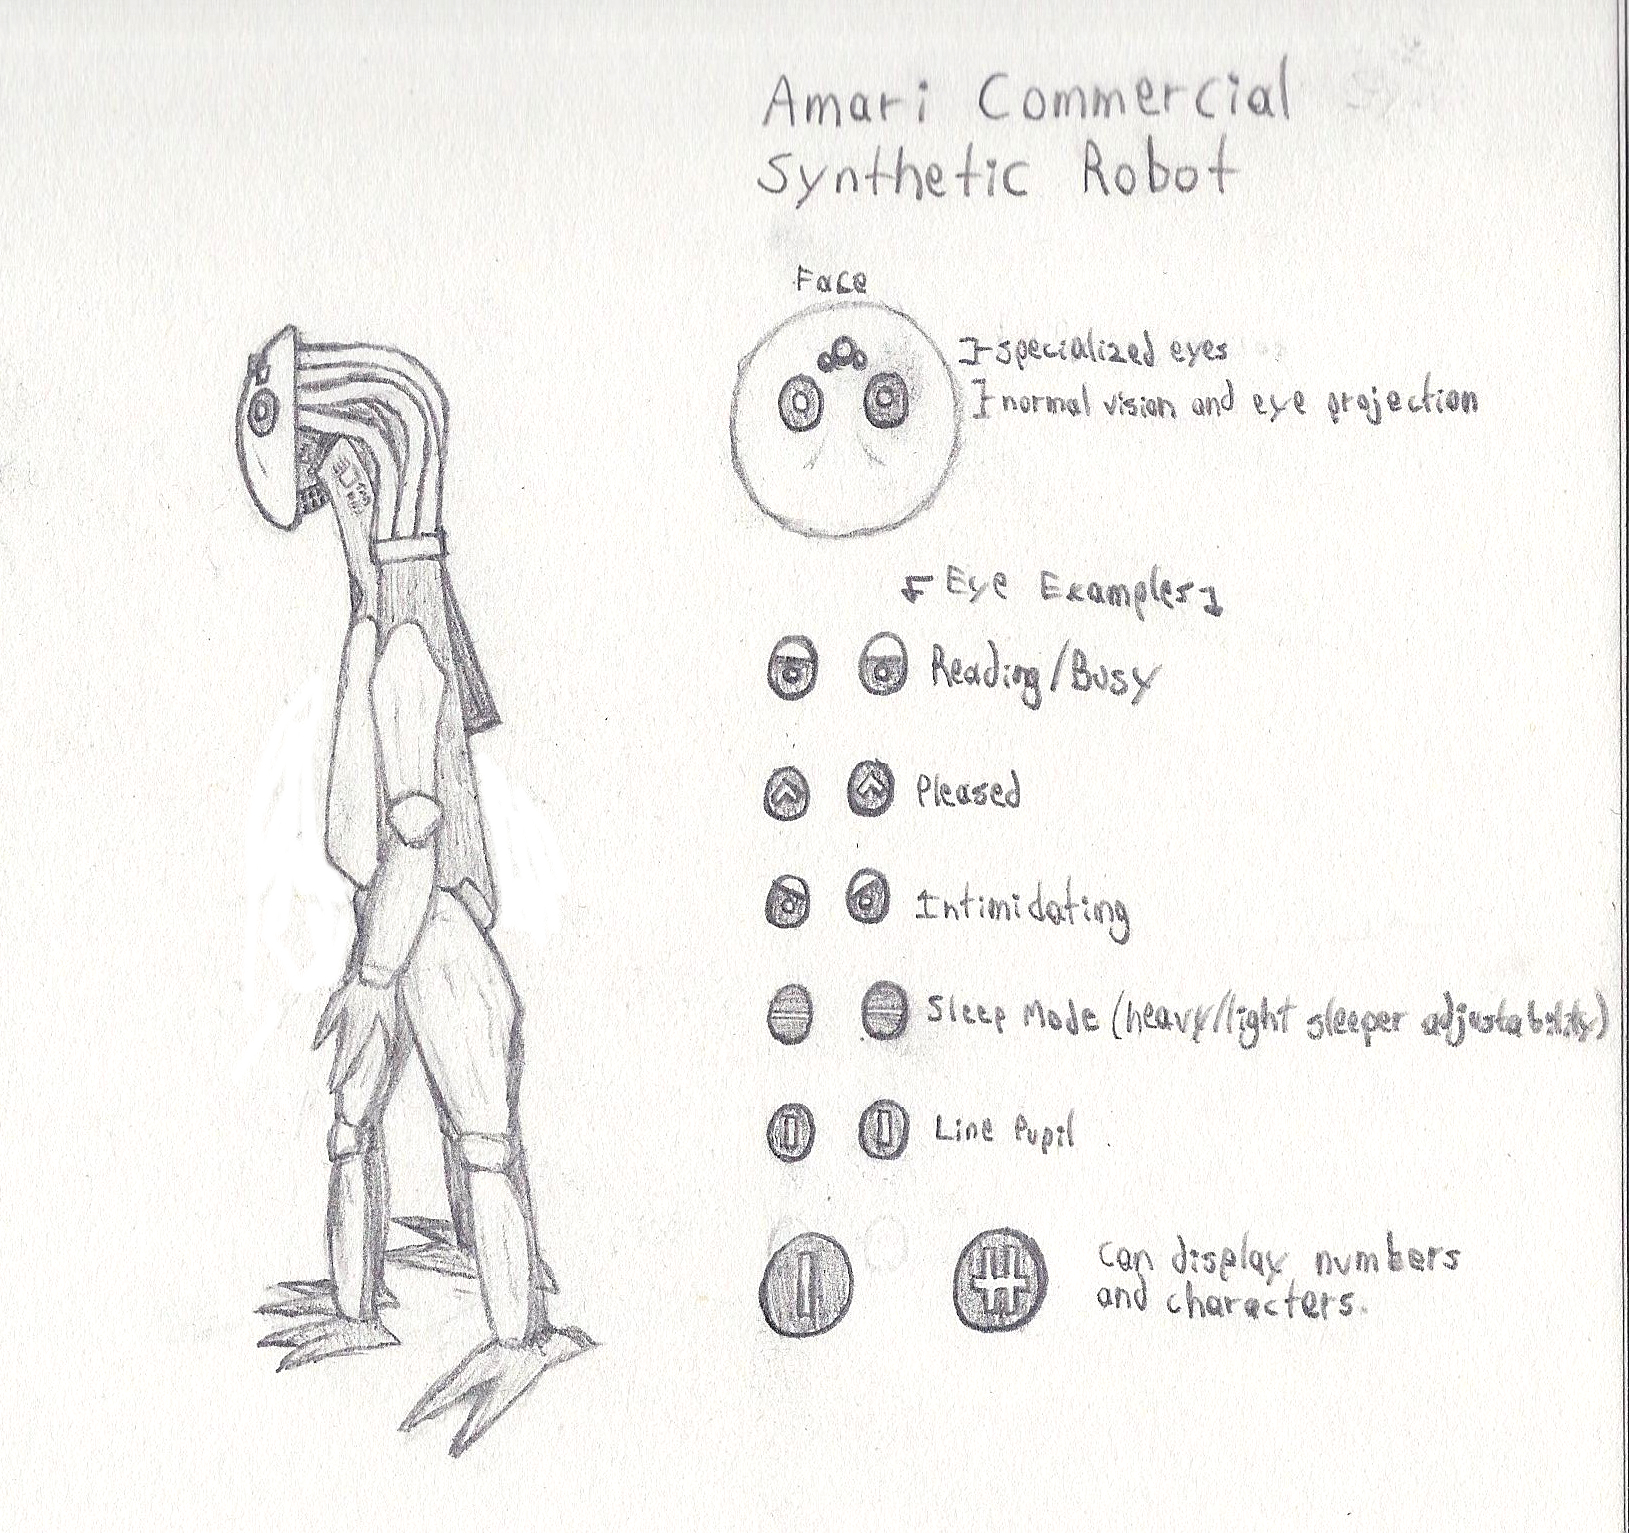 Amari Commercial
Synthetic Robot
Face
specialized eyes
normal vision and eye projection
Eye Examples
Reading/Busy
Pleased
Intimidating
Sleep Mode (heavy/light sleeper adjustability)
Line Pupil
Can display numbers
and characters.